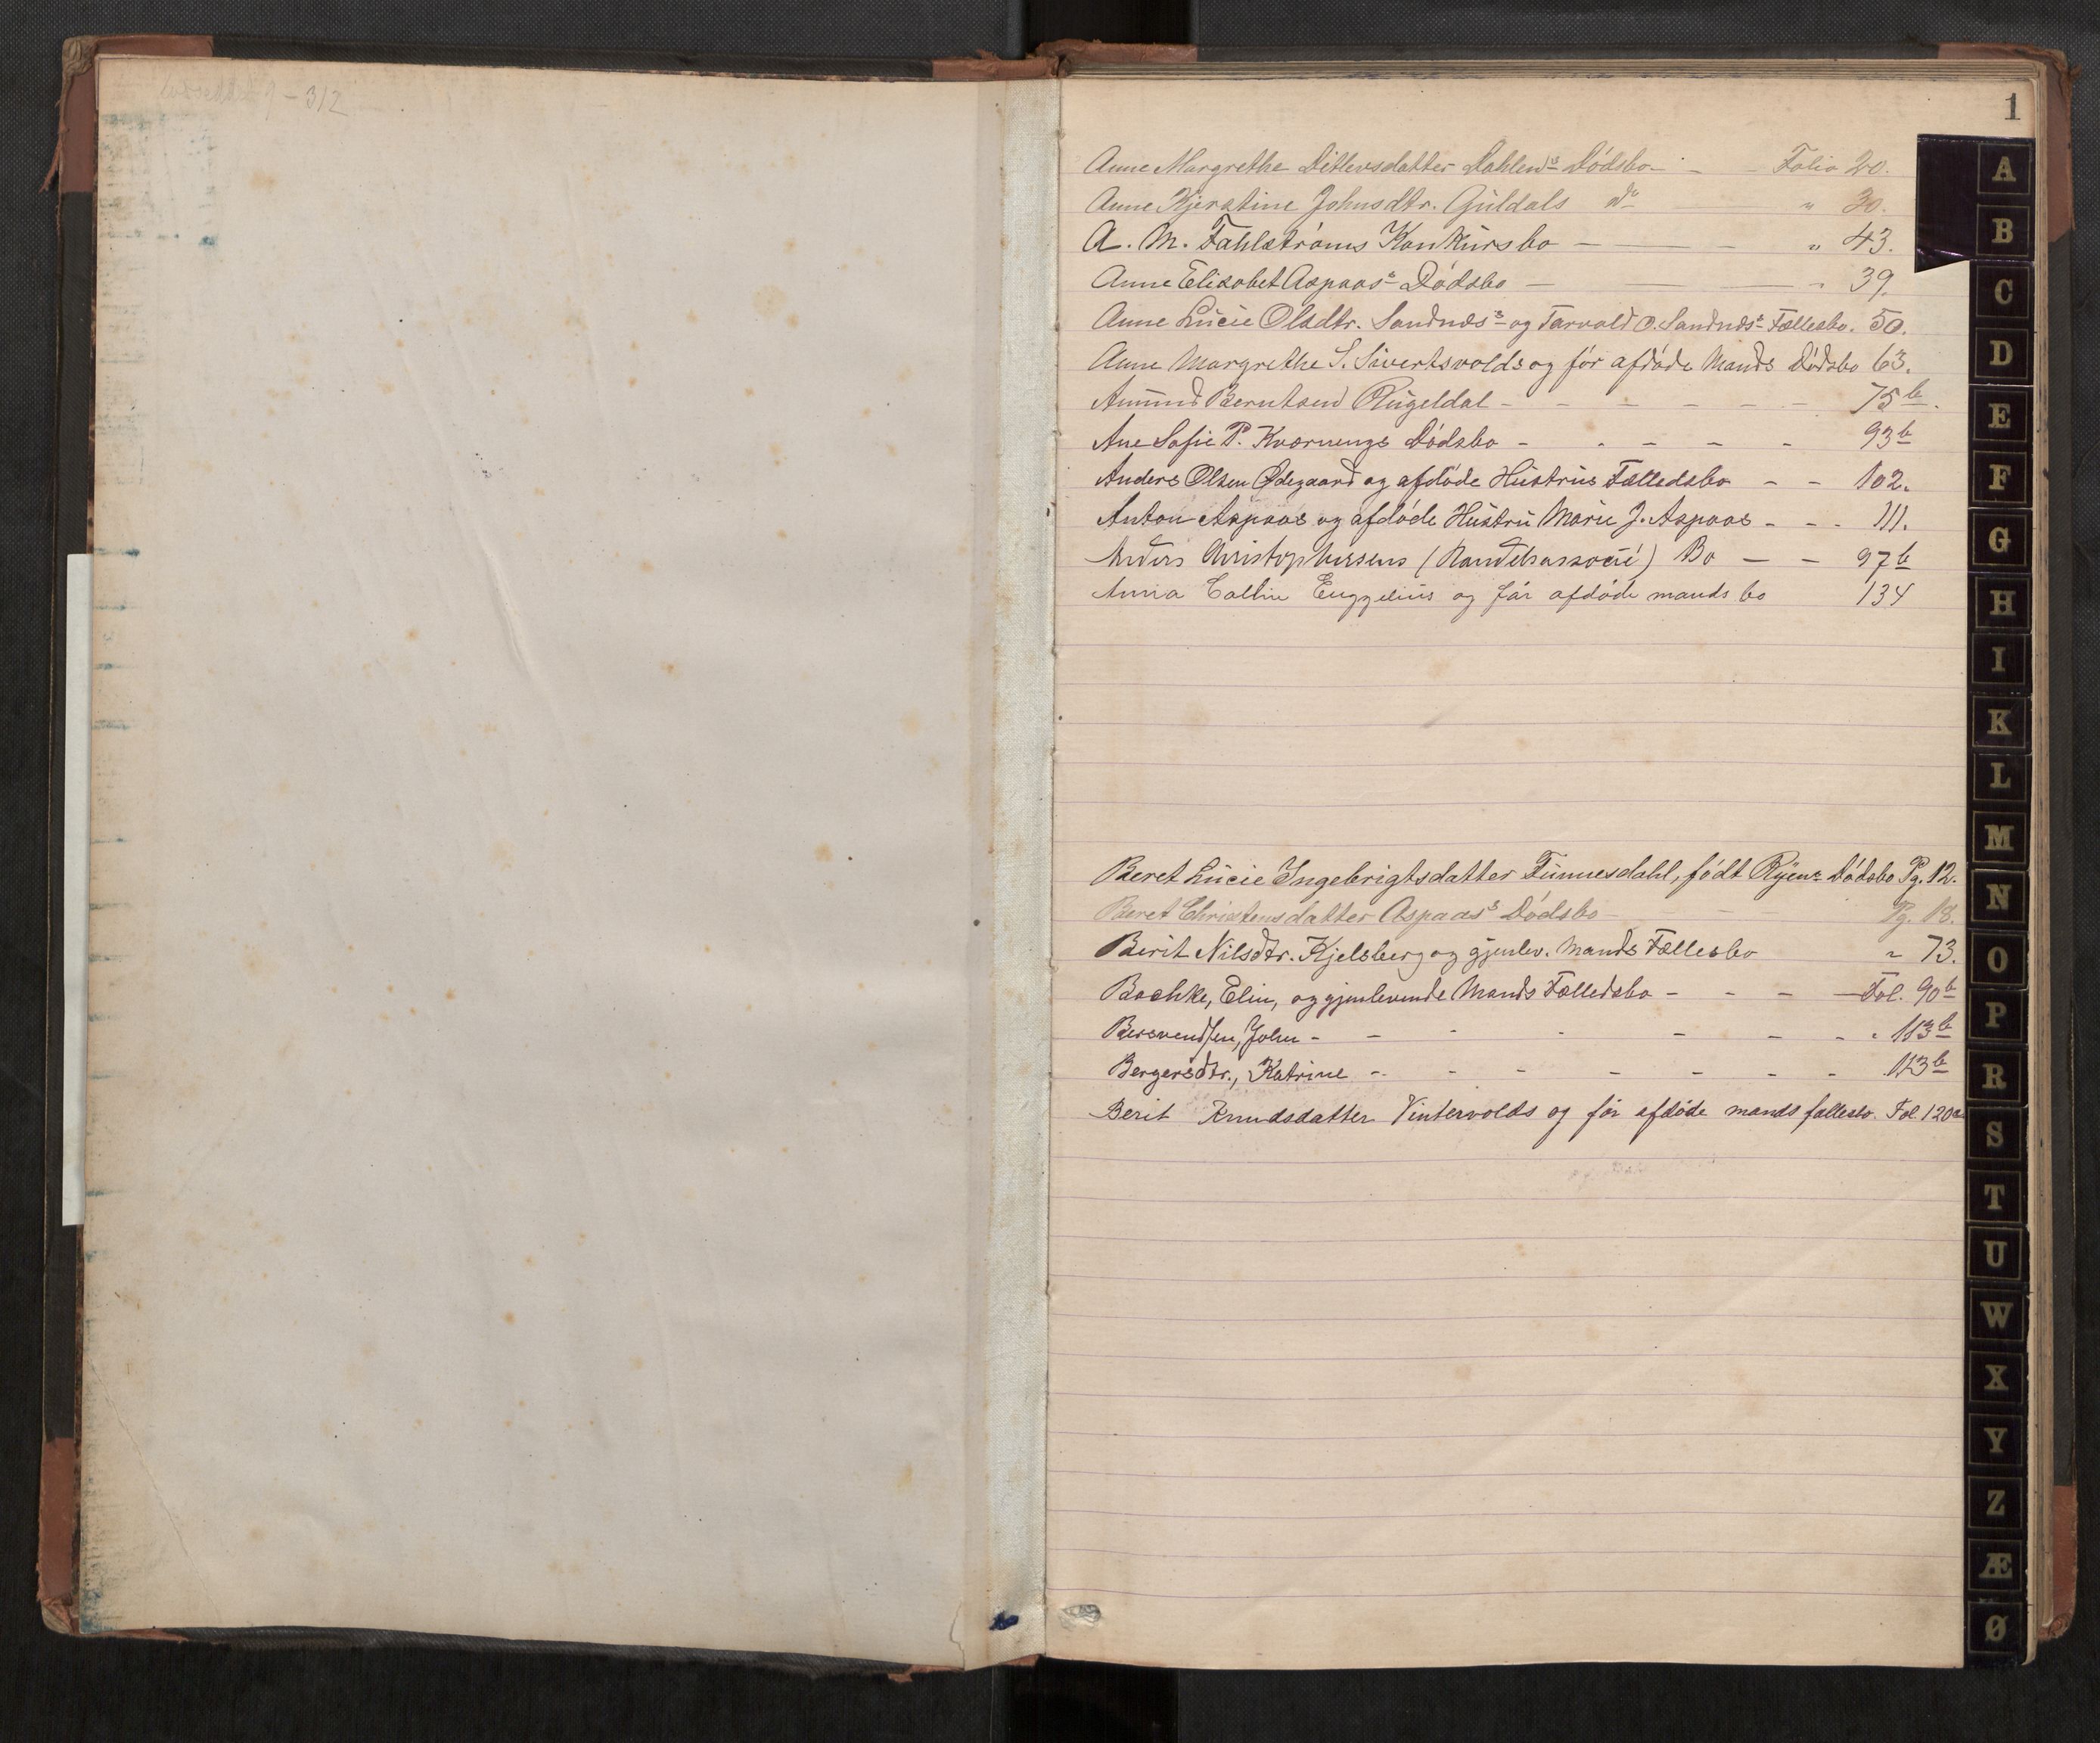 9-312
1
Anne Margrethe Ditlevsdatter Dahlens Dödsbo - - - Folio 20.
Anne Kjerstine Johnsdtr. Guldals do " 30.
A. M. Fahlströms Konkursbo - - - " 43.
Anne Elisabet Aspaas Dödsbo - - - " 39.
Anne Lucie Olsdtr. Sandnæs og Tarvald O. Sandnæs Fællesbo. 50.
Anne Margrethe S. Sivertsvolds og før afdöde Mands Dödsbo 63.
Amund Berntsen Rugeldal - - - - - - 75b.
Ane Sofie P. Kvernengs Dödsbo - - - - - 93b
Anders Olsen Ødegaard og afdöde Hustrus Fælledsbo - - 102.
Anton Aspaas og afdöde Hustru Marie J. Aspaas - - - 111.
Anders Christophersens (Røndetsaasocie) Bo - - 97b
Anna Cathrine Engzelius og før afdöde mands bo 134
Beret Lucie Ingebrigtsdatter Tunnesdahl, födt Ryens Dödsbo Pg. 12.
Beret Christensdatter Aspaas Dödsbo - - Pg. 18.
Berit Nilsdtr. Kjelsberg og gjenlev. Mands Fællesbo " 73.
Bachke, Elin, og gjenlevende Mands Fælledsbo - - - - Fol. 90b
Bersvendsen, John - - - - - - " 113b
Bergersdtr., Katrine - - - - - - - 113b
Berit Knudsdatter Vintervolds og før afdöde mands fællesbo. Fol 120a
A
B
C
D
E
F
G
H
I
K
L
M
N
O
P
R
S
T
U
W
X
Y
Z
Æ
Ø